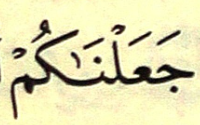 جَعَلْنَٰكُمْ